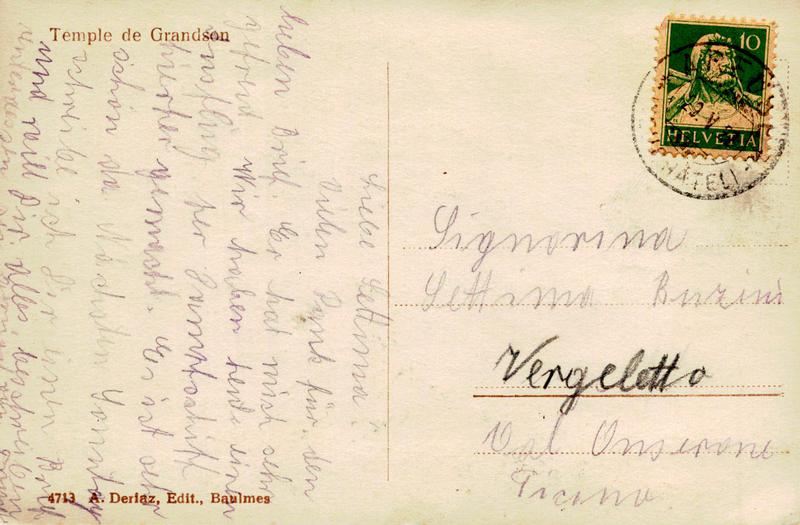 Temple de Grandson
Liebe Settima!
Vielen Dank für den
lieben Brief. Er hat mich sehr
gefreut. Wir haben heute einen
Ausflug per Dampfschiff
hierher gemacht. Es ist sehr
schön da. Nächsten Sonntag
schreibe ich Dir einen Brief
und will Dir alles beschreiben
4713 A. Deriaz, Edit., Baulmes
10
HELVETIA
Signorina
Settima Buzini
Vergeletto
Val Onsernone
Ticino